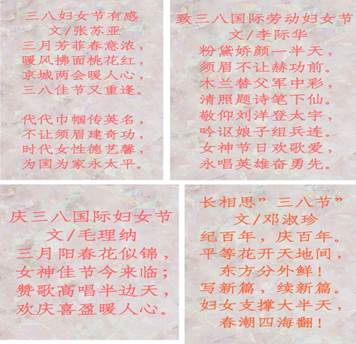 三八妇女节有感
文/张苏亚
三月芳菲春意浓，
暖风拂面桃花红，
京城两会暖人心，
三八佳节又重逢。
代代巾帼传英名，
不让须眉建奇功，
时代女性德艺馨，
为国为家永太平。
致三八国际劳动妇女节
文/李际华
粉黛娇颜一半天，
须眉不让赫功前。
木兰替父军中彩，
清照题诗笔下仙。
敬仰刘洋登太宇，
吟讴娘子组兵连。
女神节日欢歌爱，
永唱英雄奋勇先。
庆三八国际妇女节
文/毛理纳
三月阳春花似锦，
女神佳节今来临；
赞歌高唱半边天，
欢庆喜盈暖人心。
长相思”三八节”
文/邓淑珍
纪百年，庆百年。
平等花开天地间，
东方分外鲜！
写新篇，续新篇。
妇女支撑大半天，
春潮四海翻！